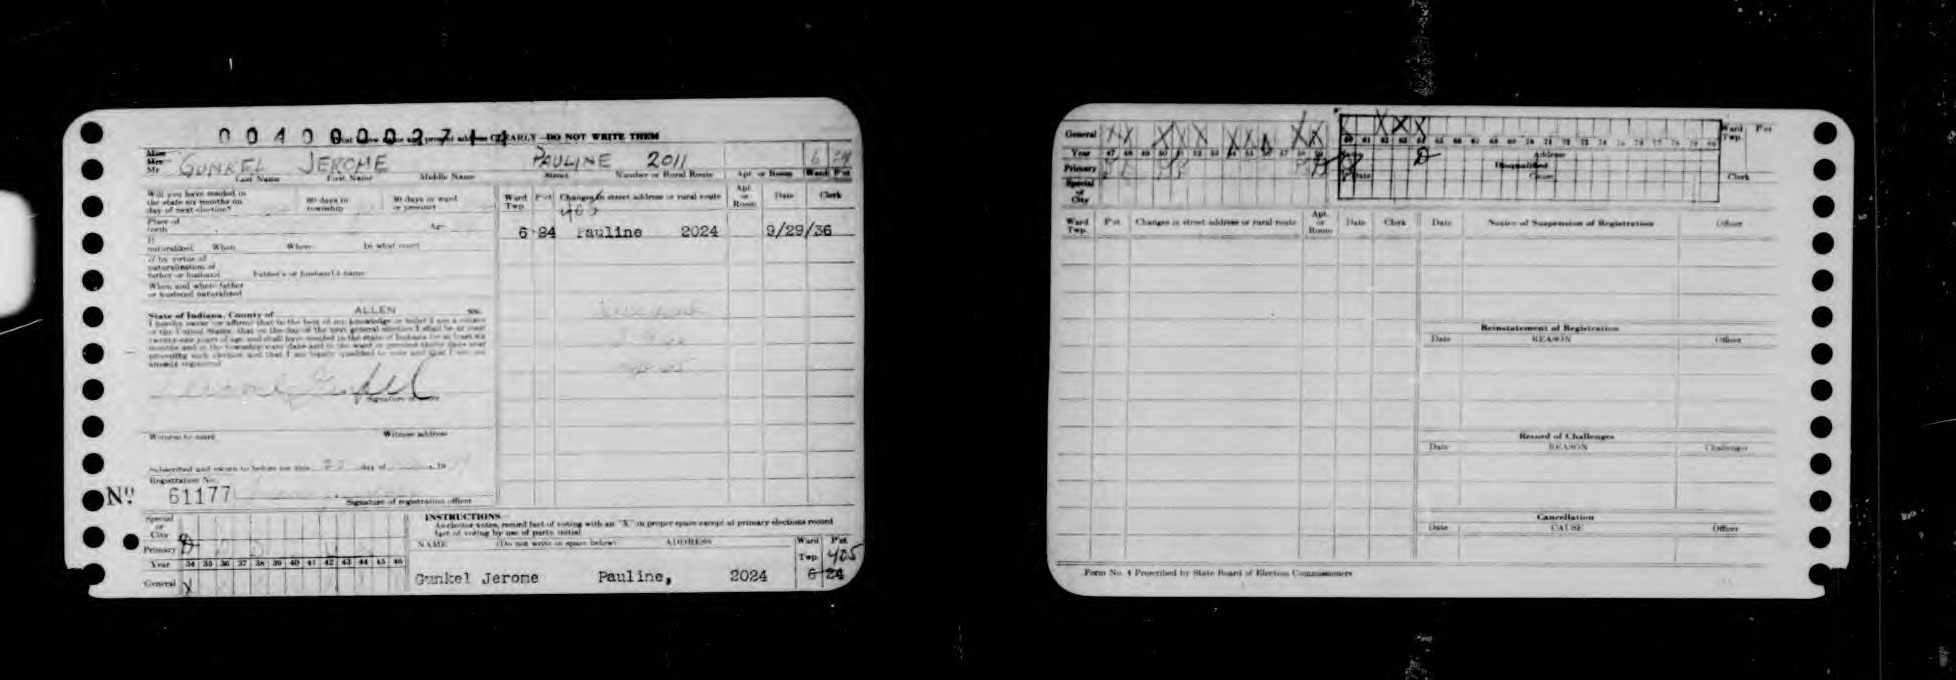 0 0 4 0 0 0 0 3 7 1 4
CLEARLY—DO NOT WRITE THEM
Miss
Mrs
Mr GUNKEL JEROME PAULINE 2011 6 24
Last Name First Name Middle Name Street Number or Rural Route Apt. or Room Ward P'ct
Will you have resided in
the state six months on
day of next election?
60 days in
township
30 days in ward
or precinct
Place of
birth Age
If
naturalized When Where In what court
If by virtue of
naturalization of
father or husband Father's or husband's name
When and where father
or husband naturalized
State of Indiana, County of ALLEN SS:
I hereby swear (or affirm) that to the best of my knowledge or belief I am a citizen
of the United States, that on the day of the next general election I shall be at least
twenty-one years of age and shall have resided in the state of Indiana for at least six
months and in the township sixty days and in the ward or precinct thirty days next
preceding such election and that I am legally qualified to vote and that I am not
already registered
Jerome Gunkel
Signature of voter
Witness to mark Witness address
Subscribed and sworn to before me this 25 day of 19
Registration No.
No. 61177
Signature of registration officer
Ward
Twp. P'ct Changes in street address or rural route Apt.
or
Room Date Clerk
405
6-24 Pauline 2024 9/29/36
Special
or
City
Primary D
Year 34 35 36 37 38 39 40 41 42 43 44 45 46
General X
INSTRUCTIONS
As elector votes, record fact of voting with an "X" in proper space except at primary elections record
fact of voting by use of party initial
NAME (Do not write in space below) ADDRESS Ward
Twp. P'ct
405
Gunkel Jerome Pauline, 2024 6-24
General X X X X X X X X X X X X X
Year 47 48 49 50 51 52 53 54 55 56 57 58 59 60 61 62 63 64 65 66 67 68 69 70 71 72 73 74 75 76 77 78 79 80
Primary D
Special
or
City
Ward
Twp. P'ct
Address
Disqualified
Date Cause Clerk
Ward
Twp. P'ct Changes in street address or rural route Apt.
or
Room Date Clerk
Date Notice of Suspension of Registration Officer
Reinstatement of Registration
Date REASON Officer
Record of Challenges
Date REASON Challenger
Cancellation
Date CAUSE Officer
Form No. 4 Prescribed by State Board of Election Commissioners